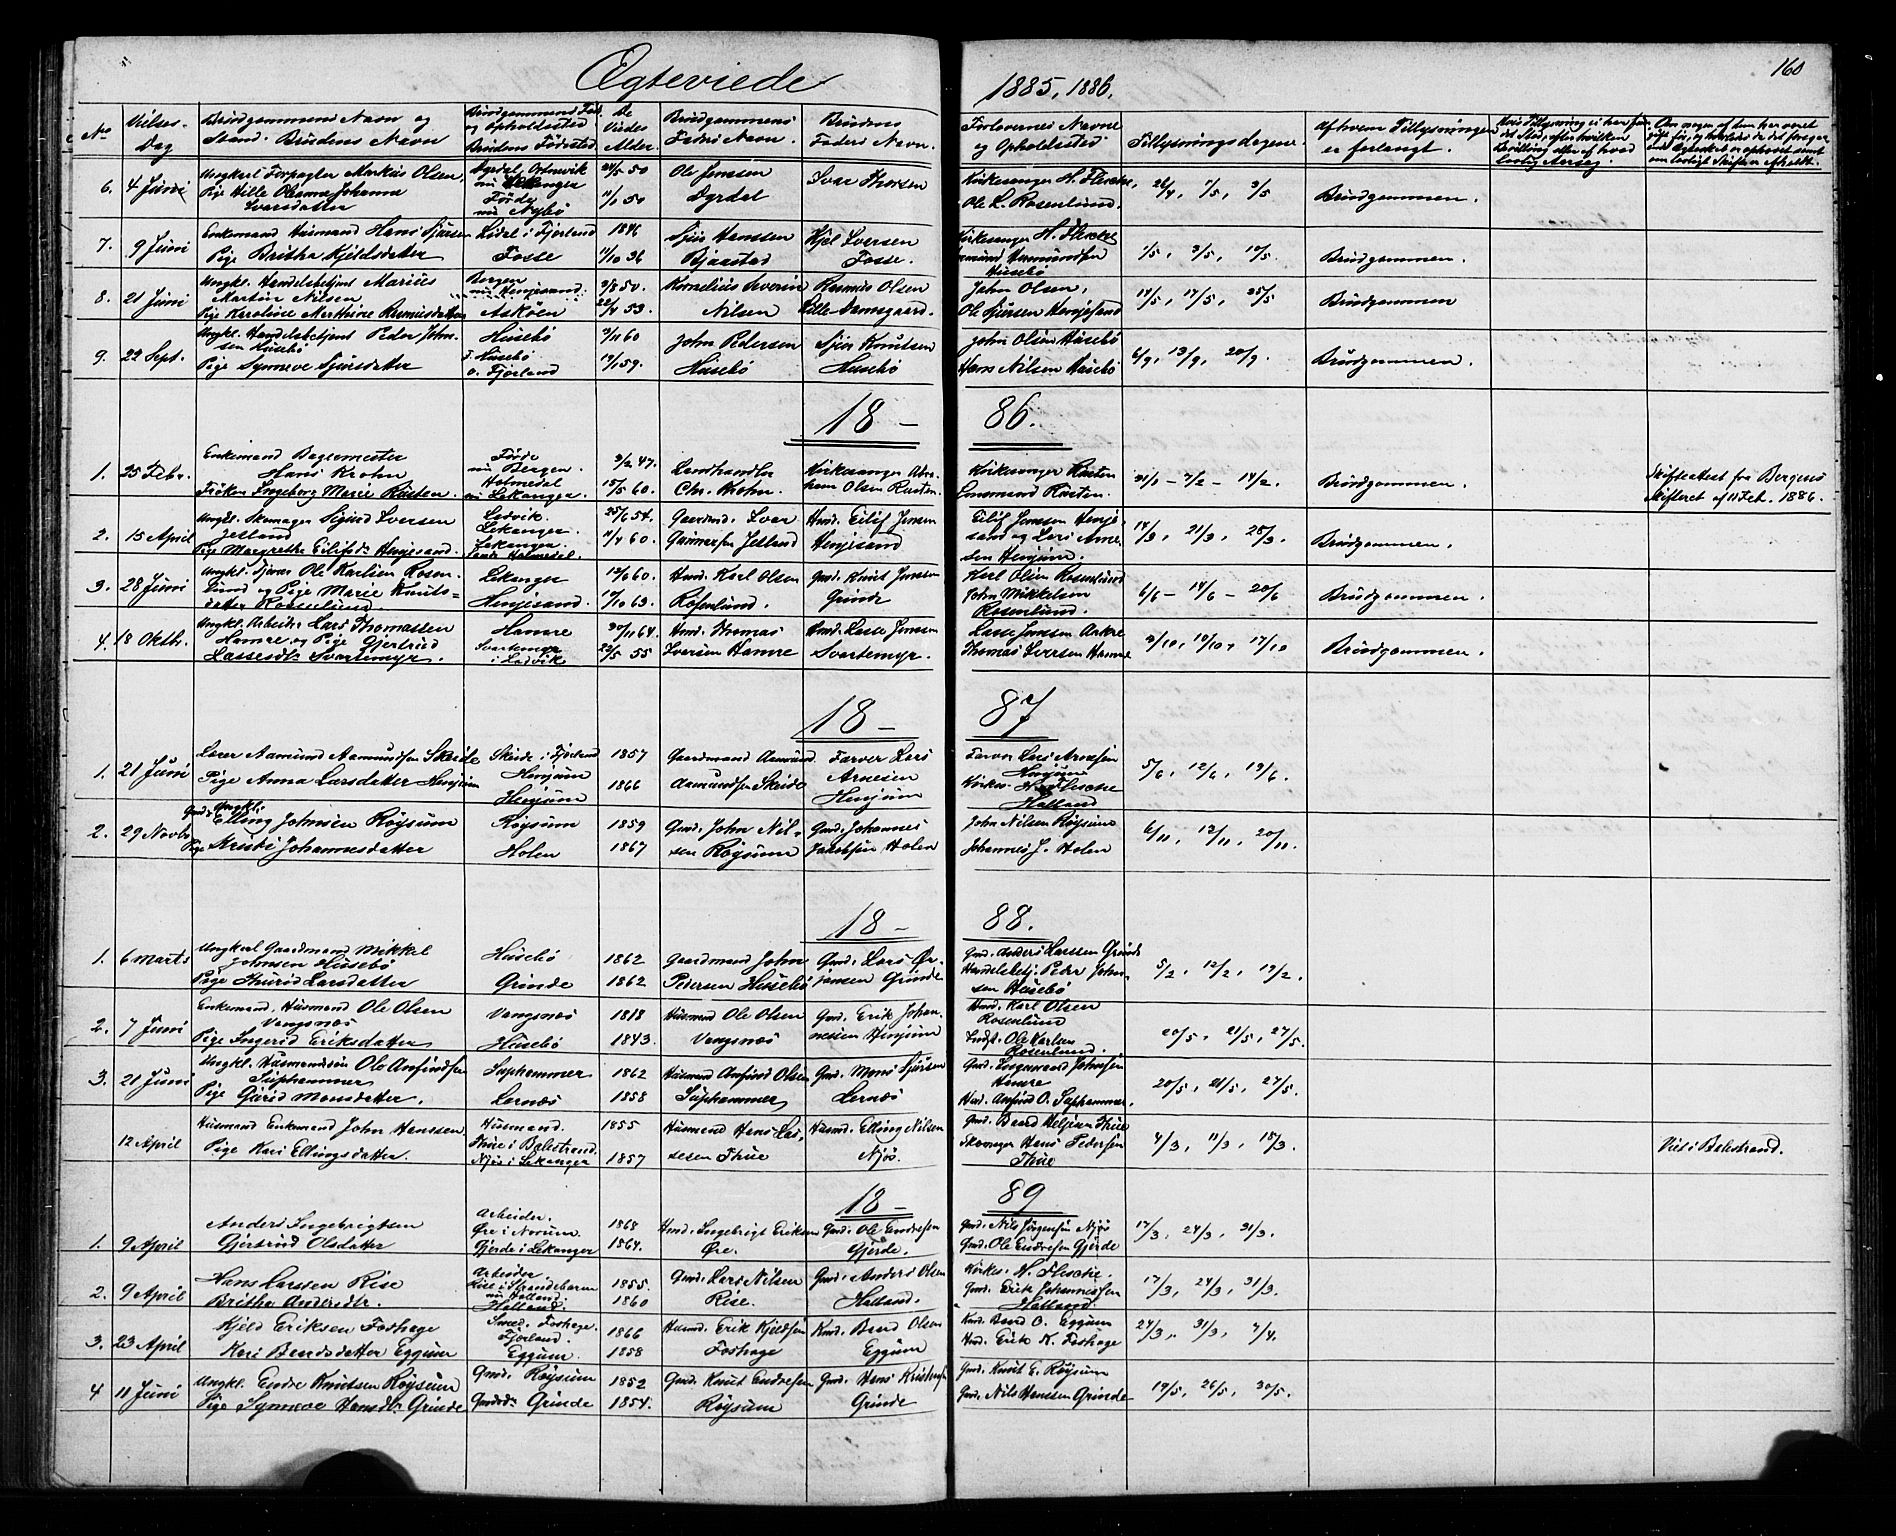 Ægteviede
1885, 1886.
160
No
Vielses-Dag
Brudgommens Navn og Stand. Brudens Navn
Brudgommens Føde og Opholdssted Brudens Fødested
De Viedes Alder.
Brudgommens Faders Navn.
Brudens Faders Navn.
Forlovernes Navne og Opholdssted
Tillysningsdagene.
Af hvem Tillysningen er forlangt.
6. 4 Juni
Ungkarl Forpagter Markus Olsen,
Pige Hille Johanna
Iversdatter
Ortnevik
Førde
50
11/1 50
Ole Jenssen
Dyrdal
Ivar Thorsen
Kirkesanger H. Flesche,
Ole L. Rosenlund.
26/4, 1/5, 3/5
Brudgommen.
7. 9 Juni
Enkemand Husmand Hans Sjursen
Pige Britha Kjeldsdatter
Lidal i Fjærland
Fosse
1846
11/10 36
Sjur Hanssen
Bjaastad
Kjel Iversen
Fosse.
Kirkesanger H. Flesche
Husebø
1/5, 3/5, 10/5.
Brudgommen.
8. 21 Juni
Ungkl. Handelsbetjent Marius
Martin Nilsen
Pige Karoline Marthine Rasmusdatter
Bergen
nu Henjesand
Askøen
9/8 50.
22/4 53.
Kornelius Severin
Nilsen
Rasmus Olsen
Lille-Damsgaard.
John Olsen,
Ole Sjursen Henjesand
14/5, 17/5, 25/5
Brudgommen
9. 22 Sept.
Ungkl. Handelsbetjent Peder John-
sen Husebø
Pige Synneve Sjursdatter
Husebø
f. Husebø
o. Fjærland
2/11 60
19/1 59.
John Pedersen
Husebø
Sjur Knutsen
Husebø
John Olsen Husebø
Hans Nilsen Husebø
6/9, 13/9, 20/9.
Brudgommen.
18 – 86.
1. 25 Febr.
Enkemand Bagermester
Hans Krohn
Frøken Ingeborg Marie Rusten.
Førde
nu Bergen.
Holmedal
nu Lekanger.
9/2 47.
15/5 60.
Landhandler
Chr. Krohn.
Kirkesanger Abra-
ham Olsen Rusten.
Kirkesanger Rusten
Lensmand Rusten.
31/1 – 7/2 – 14/2.
Brudgommen.
Skifteattest fra Bergens
Skifteret af 11 Feb. 1886.
2. 15 April
Ungkl. Skomager Sigurd Iversen
Jetland
Pige Margrethe Eilifsd. Henjesand.
Ladvik.
Lekanger.
Lekanger
Holmedal.
25/6 54.
11/4 60.
Gaardmd. Ivar
Gunnarsen Jetland
Hmd. Eilif Jensen
Henjesand
Eilif Jenssen Henje-
sand og Lars Arne-
sen Henjum.
14/3, 21/3, 28/3.
Brudgommen.
3. 28 Juni
Ungkl. Ole Karlsen Rosen-
lund og Pige Marie Knuts-
datter Rosenlund.
Lekanger
Henjesand.
12/6 60.
17/10 63.
Hmd. Karl Olsen
Rosenlund.
Gmd. Knut Jenssen
Grinde
Karl Olsen Rosenlund
John Mikkelsen
Rosenlund.
6/6 – 14/6 – 20/6
Brudgommen.
4. 18 Oktbr.
Ungkl. Arbeider Lars Thomassen
Hamre og Pige Gjertrud
Lassesdtr. Svartemyr.
Hamre
Svartemyr
i Ladvik
30/11 64.
22/5 55
Hmd. Thomas
Iversen Hamre
Hmd. Lasse Jenssen
Svartemyr.
Lasse Jenssen
Thomas Iversen Hamre
3/10, 10/10, 17/10
Brudgommen.
18 – 87
1. 21 Juni
Lærer Aamund Aamundsen Skeide
Pige Anna Larsdatter Henjum
Skeide i Fjærland
Henjum
Henjum
1857
1866
Gaardmand Aamund
Aamundsen Skeide
Farver Lars
Arnesen
Henjum
Farver Lars Arnesen
Henjum
Kirkes. H. Flesche
Halland
5/6, 12/6, 19/6.
2. 29 Novbr
Gmds. Ungkl.
Elling Johnsen Røysum
Pige Kristi Johannesdatter
Røysum
Holen
1859
1867
Gmd. John Nil-
sen Røysum
Gmd. Johannes
Jakobsen Holen
John Nilsen Røysum
Johannes J. Holen
6/11, 13/11, 20/11.
18 – 88.
1. 6 Marts
Ungkarl Gaardmand Mikkel
Johnsen Husebø
Pige Thurid Larsdatter
Husebø
Grinde
1862
1862
Gaardmand John
Pedersen Husebø
Gmd. Lars Ør-
jansen Grinde
Gmd. Anders Larssen Grinde
Handelsbetj. Peder John-
sen Husebø
5/2, 12/2, 19/2.
2. 7 Juni
Enkemand, Husmand Ole Olsen
Vangsnæs
Pige Ingerid Eriksdatter
Vangsnæs
Husebø
1818
1843.
Husmand Ole Olsen
Vangsnæs
Gmd. Erik Johan-
nesen Henjum
Hmd. Karl Olsen
Rosenlund
Ole Karlsen
Rosenlund.
20/5, 21/5, 27/5.
3. 21 Juni
Ungkl. Husmandssøn Ole Anfindsen
Suphammer
Pige Gurid Monsdatter.
Suphammer
Lernæs
1862
1858
Husmand Anfind Olsen
Suphammer
Gmd. Mons Sjursen
Lernæs
Gmd. Ingemund Johnsen
Hamre
Hmd. Anfind O. Suphammer.
20/5, 21/5, 27/5.
12 April
Husmand Enkemand John Hanssen
Pige Kari Ellingsdatter.
Husmand.
Thue i Balestrand.
Njøs i Lekanger
1855
1857
Husmand Hans Las-
sesen Thue
Husmd. Elling Nilsen
Njøs.
Gmd. Baard Helgesen Thue
Skomager Hans Pedersen
Thue
4/3, 11/3, 18/3.
Viet i Balestrand.
18 – 89
1. 9 April
Anders Ingebrigtsen
Gjertrud Olsdatter
Arbeider.
Øre i Norum.
Gjerde i Lekanger
1868
1864.
Hmd. Ingebrigt Eriksen
Øre.
Gmd. Ole Endresen
Gjerde.
Gmd. Nils Jørgensen Njøs
Gmd. Ole Endresen Gjerde
17/3, 24/3, 31/3.
2. 9 April
Hans Larssen Rise
Britha Andersdtr.
Arbeider
Rise i Strandebarm
nu Halland.
Halland.
1855.
1860
Gmd. Lars Nilsen
Rise.
Gmd. Anders Olsen
Halland.
Kirkes. H. Flesche.
Gmd. Erik Johannessen
Halland.
17/3, 24/3, 31/3.
3. 23 April
Kjeld Eriksen Foshage
Kari Bendsdatter Eggum
Smed. Foshage.
Fjærland.
Eggum.
1866
1858
Husmd. Erik Kjeldsen
Foshage
Gmd. Bend Olsen
Eggum
Gmd. Bend O. Eggum
Hmd. Erik K. Foshage
24/3, 31/3, 7/4.
4 11 Juni
Ungkl. Endre Knutsen Røysum
Pige Synneve Hansdtr. Grinde
Gmd. Røysum
Gmdsd. Grinde
1852
1854.
Gmd. Knut Endresen
Røysum
Gmd. Hans Kristensen
Grinde
Gmd. Knut E. Røysum
Gmd. Nils Hanssen Grinde
19/5, 26/5, 30/5.